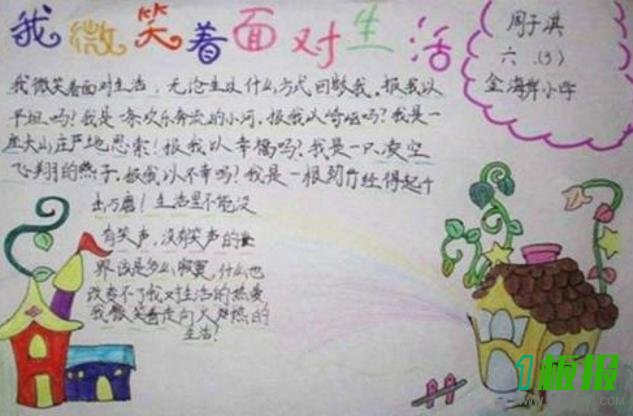 我微笑着面对生活
周子淇
六.(3)
金海岸小学
我微笑着面对生活，无论生以什么方式回敬我。报我以
平坦吗？我是一条欢乐奔流的小河。报我以崎岖吗？我是一
座大山庄严地思索！报我以幸福吗？我是一只凌空
飞翔的燕子。报我以不幸吗？我是一根劲竹经得起千
击万磨！生活里不能没
有笑声，没有笑声的世
界该是多么寂寞，什么也
改变不了我对生活的热爱
我微笑着走向火热的
生活！
1板报